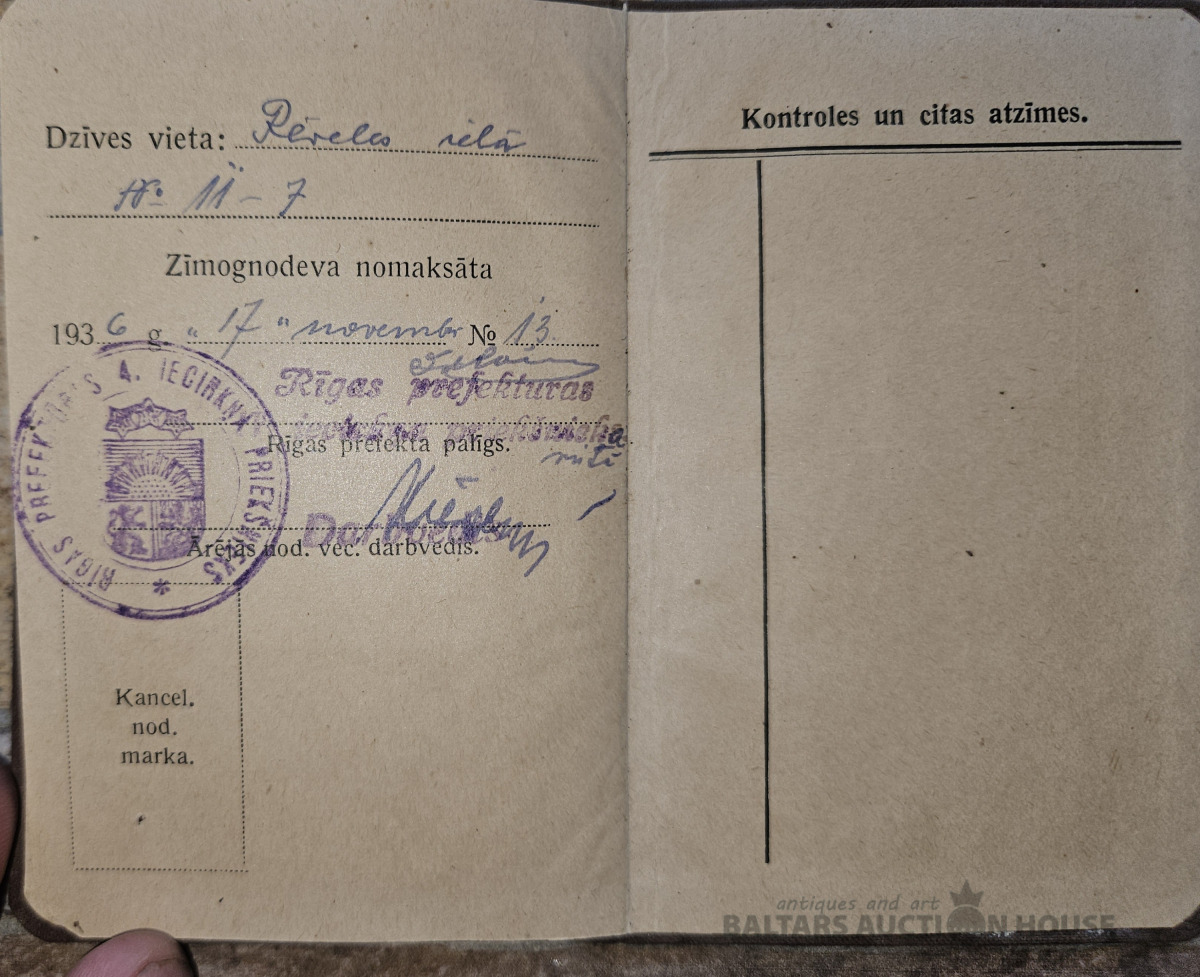 Dzīves vieta: Pēveles ielā
№ 11 – 7
Zīmognodeva nomaksāta
1936 g. „17“ novembr № 13.
Rīgas prefektūras
iecirkņa priekšnieka
Rīgas prefekta palīgs.
Ārējās nod. vec. darbvedis.
RĪGAS PREFEKTŪRAS 4. IECIRKŅA PRIEKŠNIEKS *
Kancel.
nod.
marka.
Kontroles un citas atzīmes.
antiques and art
BALTARS AUCTION HOUSE